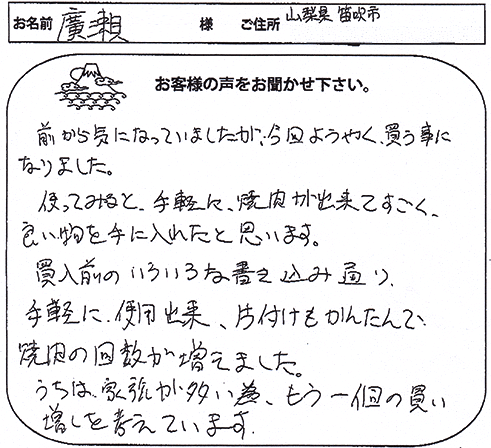 お名前 廣瀬 様 ご住所 山梨県 笛吹市
お客様の声をお聞かせ下さい。
前から気になっていましたが、今回ようやく、買う事に
なりました。
使ってみると、手軽に、焼肉が出来てすごく、
良い物を手に入れたと思います。
買入前のいろいろな書き込み通り、
手軽に、使用出来、片付けもかんたんで、
焼肉の回数が増えました。
うちは、家族が多い為、もう一個の買い
増しを考えています。